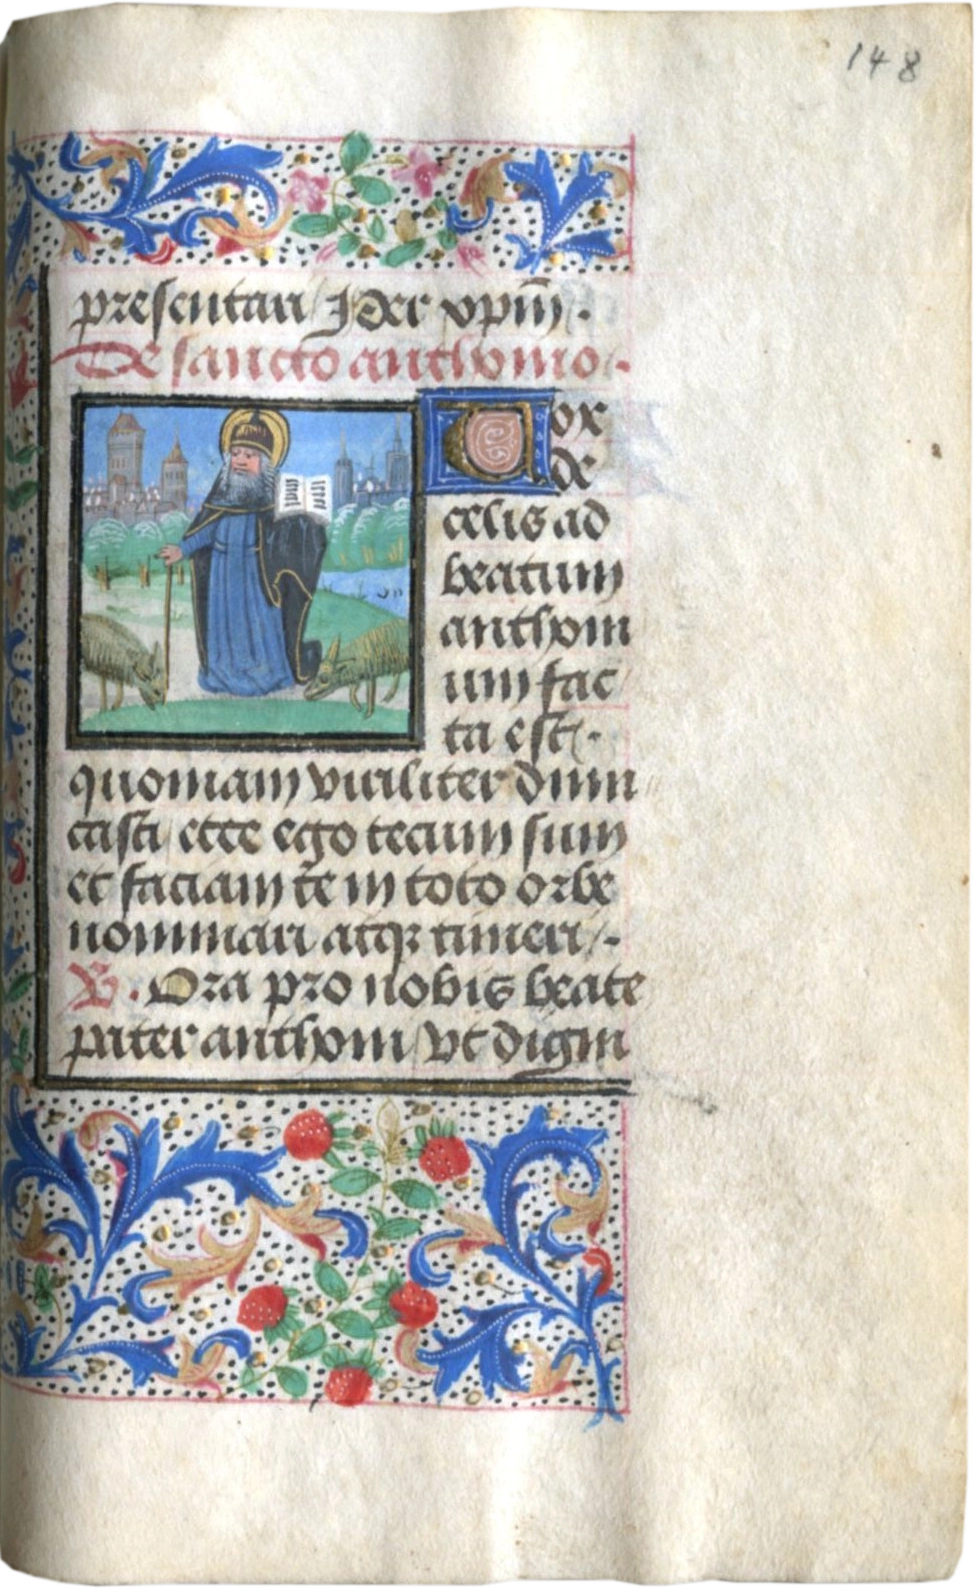 148
presentari Per xpm̄.
De sancto anthonio.
Vox
de
celis ad
beatum
anthoni
um fac
ta est.
quoniam viriliter dimi
casti ecce ego tecum sum
et faciam te in toto orbe
nominari atqꝫ timeri.
℟. Ora pro nobis beate
pater anthoni vt digni